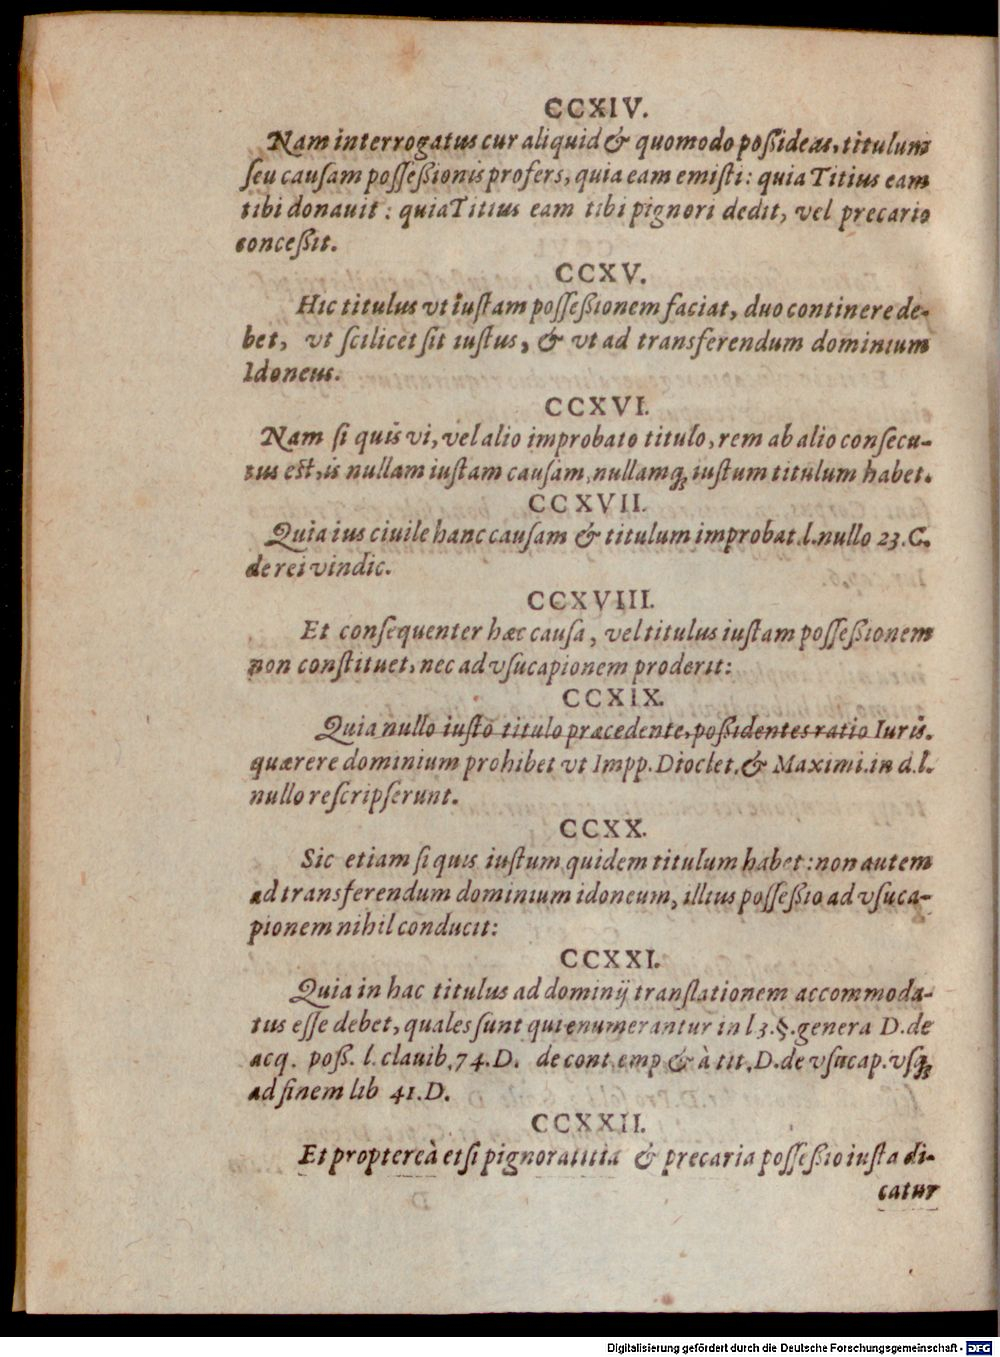 CCXIV.
Nam interrogatus cur aliquid & quomodo poßideas, titulum
ſeu cauſam poſſeßionis profers, quia eam emiſti: quia Titius eam
tibi donauit: quia Titius eam tibi pignori dedit, vel precario
conceßit.
CCXV.
Hic titulus vt iuſtam poſſeßionem faciat, duo continere de-
bet, vt ſcilicet ſit iuſtus, & vt ad transferendum dominium
Idoneus.
CCXVI.
Nam ſi quis vi, vel alio improbato titulo, rem ab alio conſecu-
tus eſt, is nullam iuſtam cauſam, nullamq; iuſtum titulum habet.
CCXVII.
Quia ius ciuile hanc cauſam & titulum improbat l. nullo 23. C.
de rei vindic.
CCXVIII.
Et conſequenter hæc cauſa, vel titulus iuſtam poſſeßionem
non conſtituet, nec ad vſucapionem proderit:
CCXIX.
Quia nullo iuſto titulo præcedente, poßidentes ratio Iuris.
quærere dominium prohibet vt Impp. Dioclet. & Maximi. in d. l.
nullo reſcripſerunt.
CCXX.
Sic etiam ſi quis iuſtum quidem titulum habet: non autem
ad transferendum dominium idoneum, illius poſſeßio ad vſuca-
pionem nihil conducit:
CCXXI.
Quia in hac titulus ad dominij tranſlationem accommoda-
tus eſſe debet, quales ſunt qui enumerantur in l 3. §. genera D. de
acq. poß. l. clauib. 74. D. de cont emp & à tit. D. de vſucap. vſq;
ad finem lib 41. D.
CCXXII.
Et proptereà etſi pignoratitia & precaria poſſeßio iuſta di-
catur
Digitalisierung gefördert durch die Deutsche Forschungsgemeinschaft - DFG